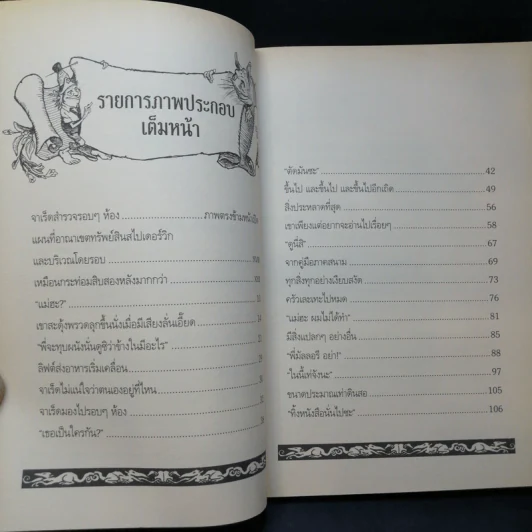 รายการภาพประกอบ
เต็มหน้า
จาเร็ดสำรวจรอบๆ ห้อง ภาพตรงข้าม
แผนที่อาณาเขตทรัพย์สินสไปเดอร์วิก
และบริเวณโดยรอบ
เหมือนกระท่อมสิบสองหลังมากกว่า
"แม่ฮะ?"
เขาสะดุ้งพรวดลุกขึ้นนั่งเมื่อมีเสียงลั่นเอี๊ยด
"พี่จะทุบผนังนั่นดูซิว่าข้างในมีอะไร"
ลิฟต์ส่งอาหารเริ่มเคลื่อน
จาเร็ดไม่แน่ใจว่าตนเองอยู่ที่ไหน
จาเร็ดมองไปรอบๆ ห้อง
"เธอเป็นใครกัน?"
"ตัดมันซะ" 42
ขึ้นไป และขึ้นไป และขึ้นไปอีกเถิด 49
สิ่งประหลาดที่สุด 56
เขาเพียงแต่อยากจะอ่านไปเรื่อยๆ 58
"ดูนี่สิ" 67
จากคู่มือภาคสนาม 69
ทุกสิ่งทุกอย่างเงียบสงัด 73
ครัวเละเทะไปหมด 76
"แม่ฮะ ผมไม่ได้ทำ" 81
มีสิ่งแปลกๆ อย่างอื่น 85
"พี่มัลลอรี อย่า!" 88
"ในนี้เท่จังนะ" 97
ขนาดประมาณเท่าดินสอ 105
"ทิ้งหนังสือนั่นไปซะ" 106